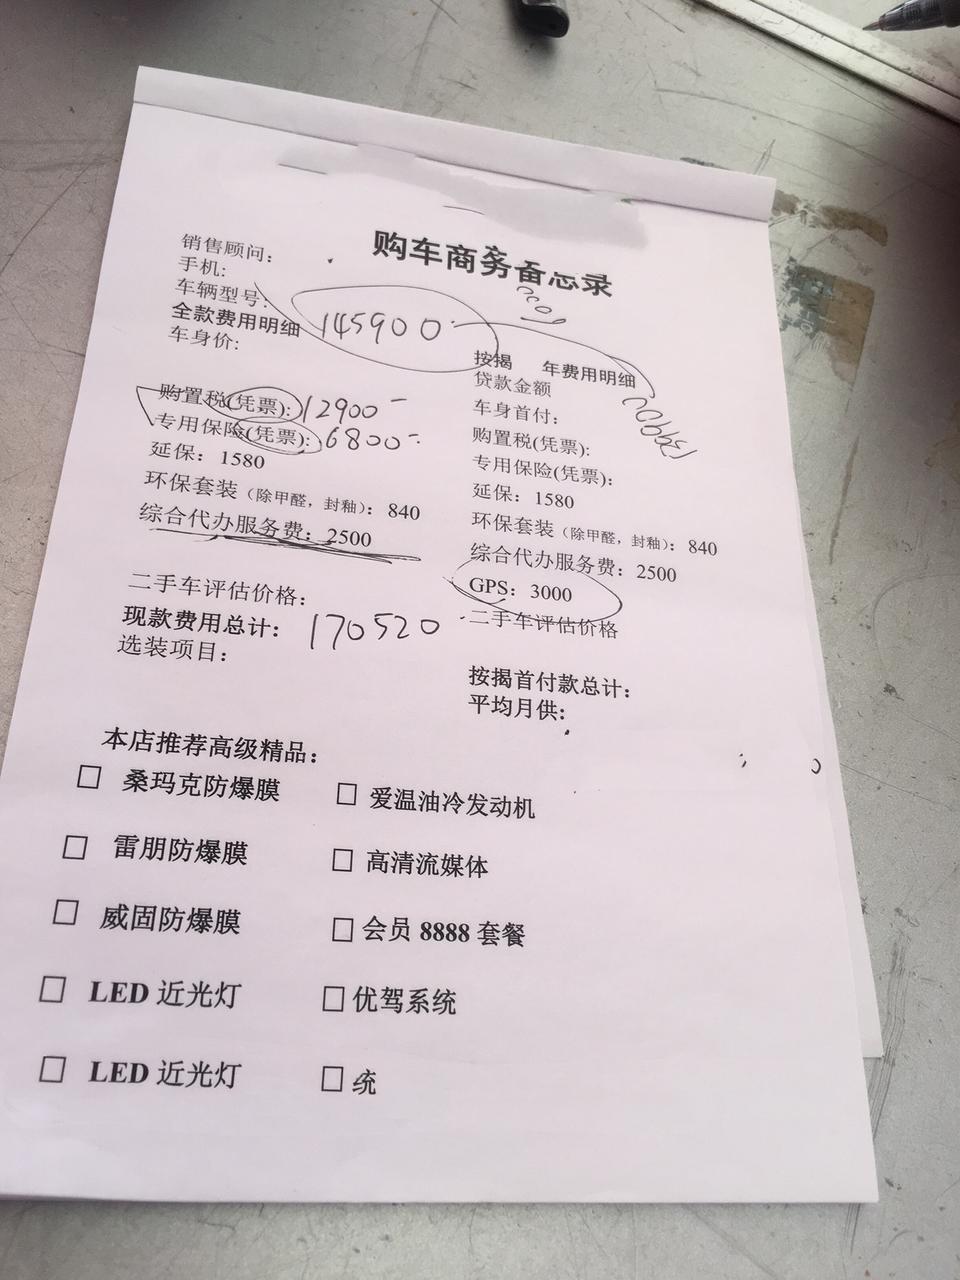 购车商务备忘录
销售顾问：
手机:
车辆型号:
全款费用明细 145900
车身价:
购置税(凭票): 12900
专用保险(凭票): 6800
延保：1580
环保套装（除甲醛，封釉）：840
综合代办服务费：2500
二手车评估价格：
现款费用总计： 170520
选装项目：
按揭 年费用明细
贷款金额
车身首付：
购置税(凭票):
专用保险(凭票)：
延保：1580
环保套装（除甲醛，封釉）：840
综合代办服务费：2500
GPS：3000
二手车评估价格
按揭首付款总计：
平均月供：
本店推荐高级精品：
□ 桑玛克防爆膜 □ 爱温油冷发动机
□ 雷朋防爆膜 □ 高清流媒体
□ 威固防爆膜 □ 会员 8888 套餐
□ LED 近光灯 □ 优驾系统
□ LED 近光灯 □ 统